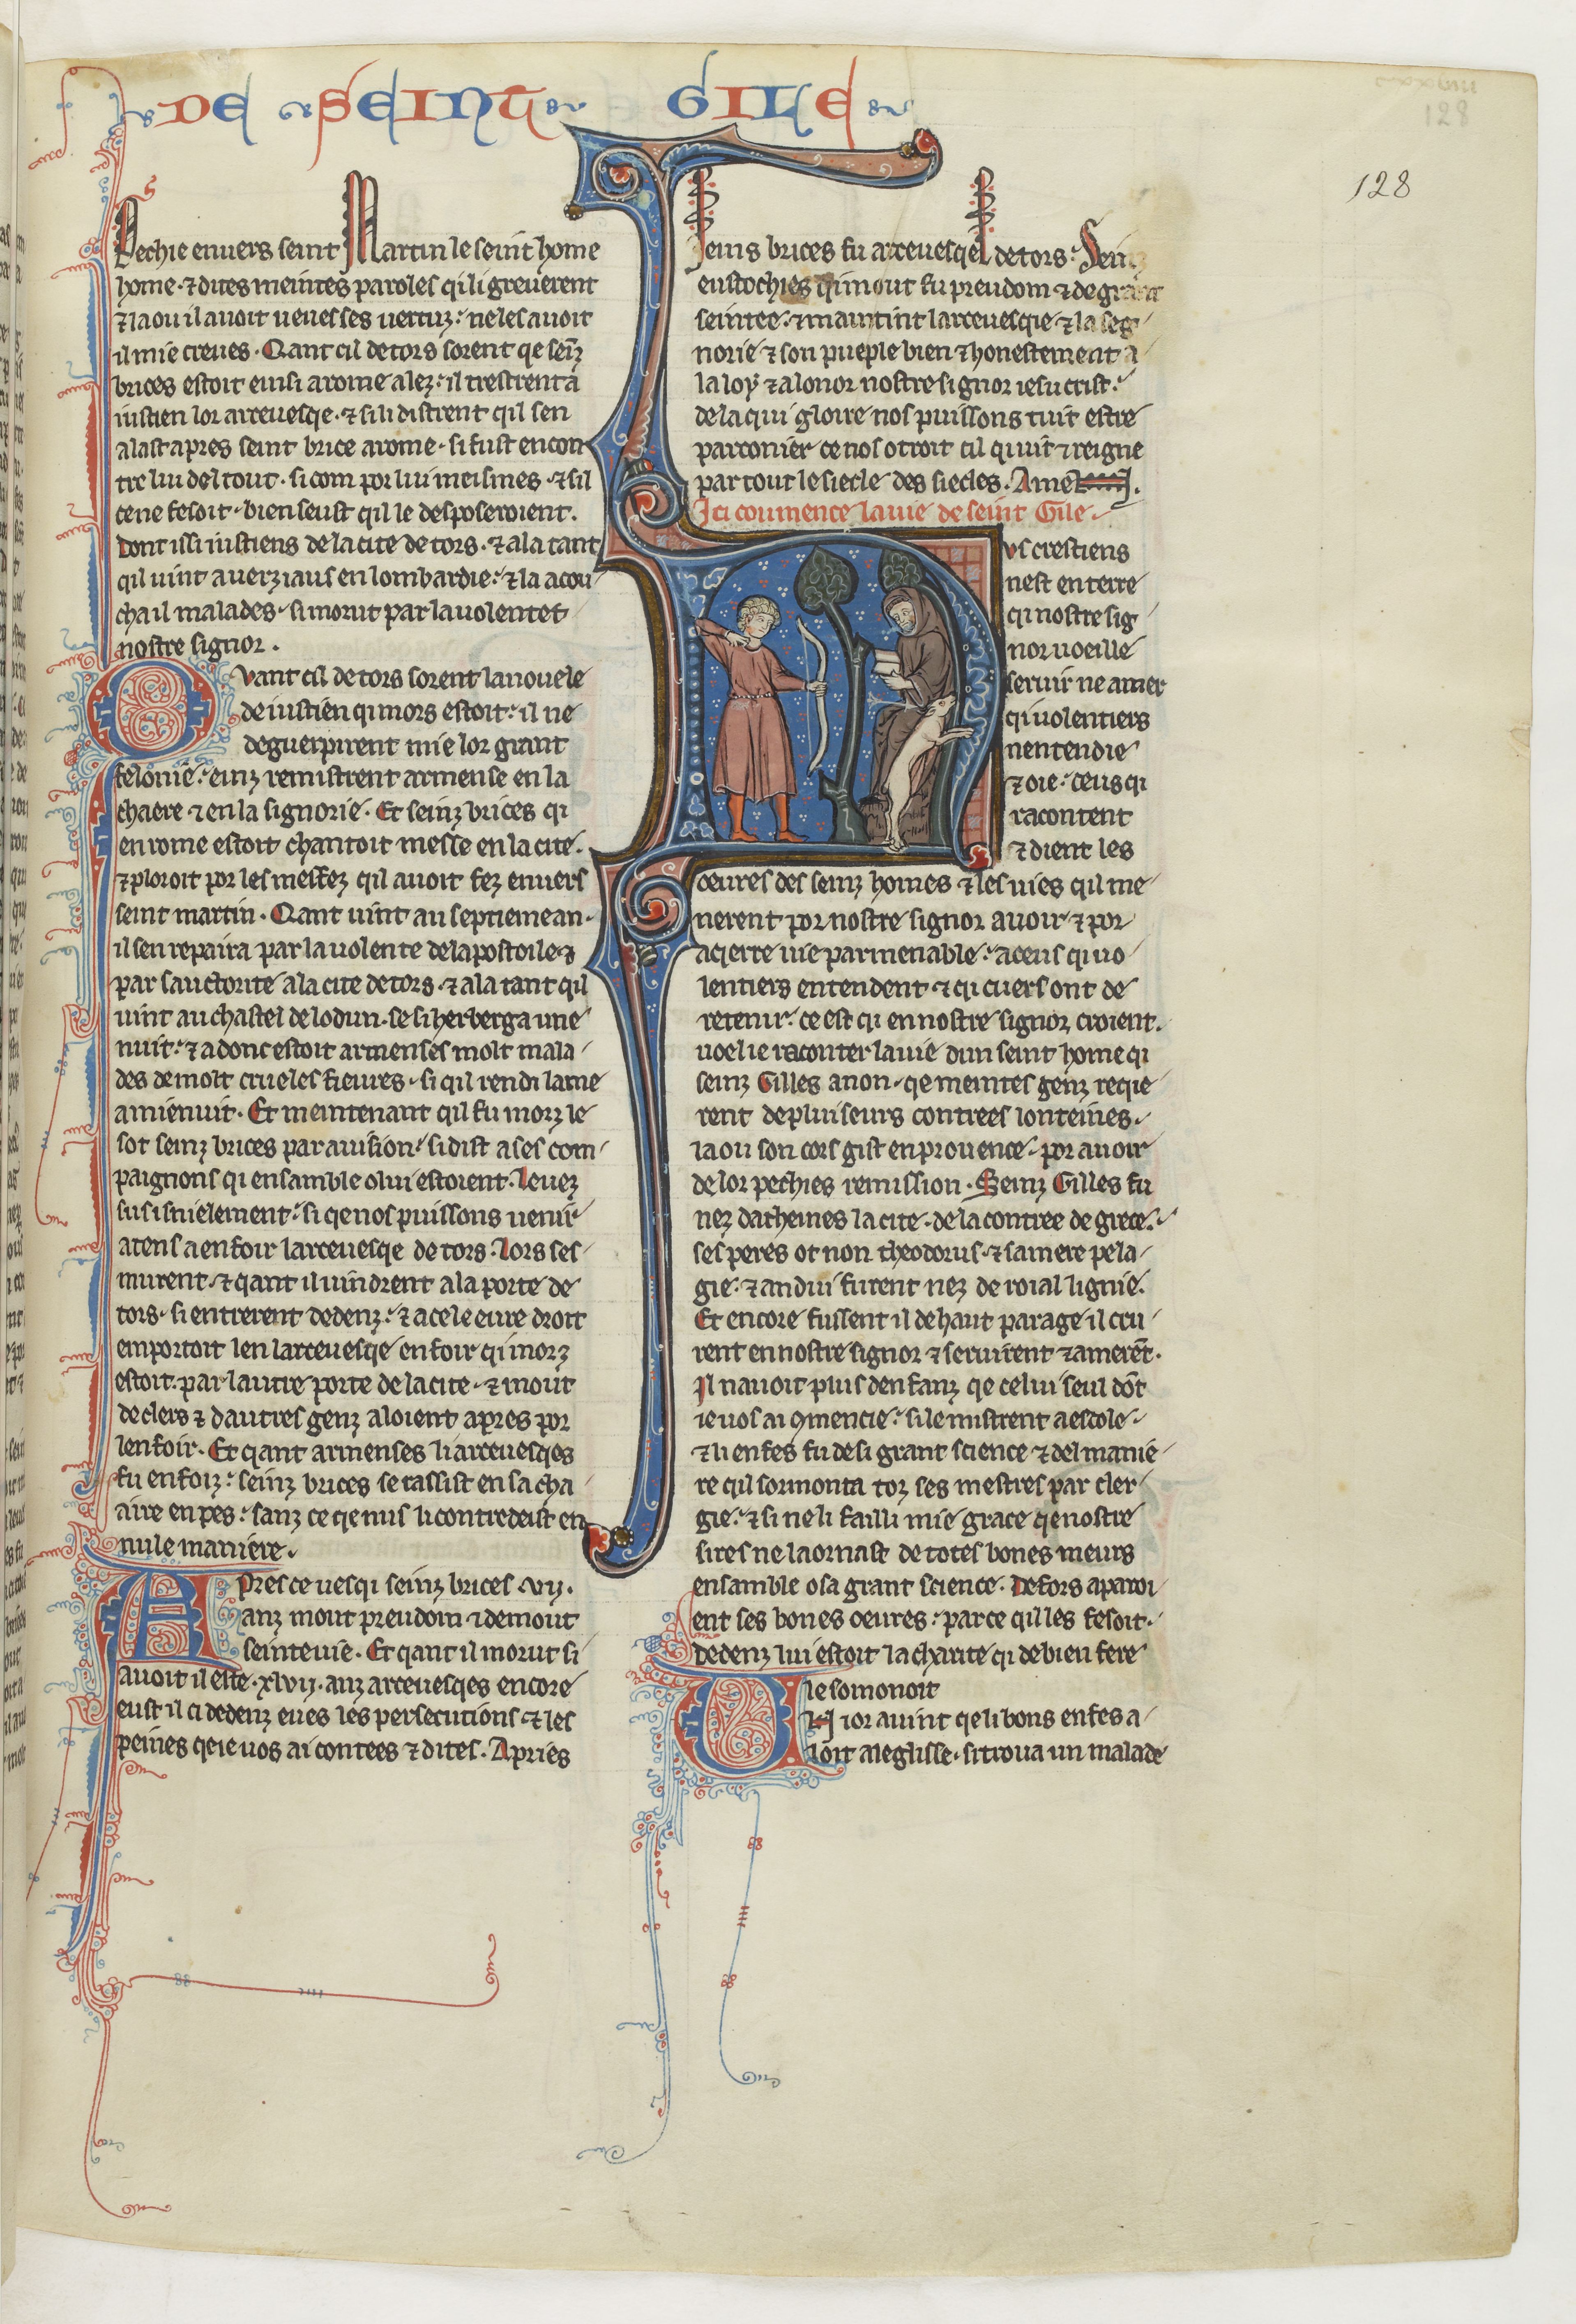 DE SEINT GILE
128
128
Pechie enuers seint Martin le seint home
home · ⁊ dites meintes paroles qi li greuerent
⁊ la ou il auoit ueues ses uertuz · ne les auoit
il mie creues · Qant cil de tors sorent qe seīz
brices estoit einsi a rome alez · il trestrent a
iustien lor arceuesqe · ⁊ si li distrent qil sen
alast apres seint brice a rome · si fust encon
tre lui del tout · si com por lui meismes · ⁊ sil
ce ne fesoit · bien seust qil le desposeroient ·
dont issi iustiens de la cite de tors · ⁊ ala tant
qil uint a uerziaus en lombardie · ⁊ la acou
cha il malades · si morut par la uolentet
nostre signor ·
Quant cil de tors sorent la nouele
de iustien qi mors estoit · il ne
deguerpirent mie lor grant
felonie · einz remistrent armense en la
chaere · ⁊ en la signorie · Et seinz brices qi
en rome estoit chantoit messe en la cite ·
⁊ ploroit por les mesfez qil auoit fez enuers
seint martin · Qant uint au septieme an ·
il sen repaira par la uolente de lapostoile ⁊
par sauctorite a la cite de tors · ⁊ ala tant qil
uint au chastel de lodun · se si herberga une
nuit · ⁊ adonc estoit armenses molt mala
des de molt crueles fieures · si qil rendi lame
a mienuit · Et meintenant qil fu morz le
sot seinz brices par auision · si dist a ses com
paignons qi ensamble o lui estoient · Leuez
sus isnielement · si qe nos puissons uenir
a tens a enfoir larceuesqe de tors · Lors ses
murent · ⁊ qant il uindrent a la porte de
tors · si entrerent dedenz · ⁊ a cele eure droit
emportoit len larceuesqe enfoir qi morz
estoit · par lautre porte de la cite · ⁊ mout
de clers ⁊ dautres genz aloient apres por
lenfoir · Et qant armenses li arceuesqes
fu enfoiz · seinz brices se rassist en sa cha
aire en pes · sanz ce qe nus li contredeist en
nule maniere ·
Apres ce uesqi seinz brices · vij ·
anz mout preudom ⁊ de mout
seinte uie · Et qant il morut si
auoit il este · xlvij · anz arceuesqes encore
eust il ci dedenz eues les persecutions ⁊ les
peines qe ie uos ai contees ⁊ dites · Apries
seins brices fu arceuesqe de tors · Sein
eustochies qi mout fu preudom ⁊ de grant
seintee · ⁊ maintint larceuesqie ⁊ la seg
norie ⁊ son pueple bien ⁊ honestement a
la loy ⁊ a lonor nostre signor iesucrist ·
de la qui gloire nos puissons tuit estre
parconier ce nos otroit cil qi uit ⁊ reigne
par tout le siecle des siecles · Ame
Ici coumence la uie de seint Gile ·
Nus crestiens
nest en terre
qi nostre sig
nor uoeille
seruir ne amer
qi uolentiers
nentendie
⁊ oie · ceus qi
racontent
⁊ dient les
oeures des seinz homes ⁊ les uies qil me
nerent por nostre signor auoir ⁊ por
aqerre uie parmenable · a ceus qi uo
lentiers entendent ⁊ qi cuers ont de
retenir · ce est qi en nostre signor croient ·
uoel ie raconter la uie dun seint home qi
seinz Gilles a non · qe meintes genz reqie
rent de pluiseurs contrees lonteines ·
la ou son cors gist en prouence · por auoir
de lor pechies remission · Seinz Gilles fu
nez datheines la cite · de la contree de grece ·
ses peres ot non theodorus · ⁊ sa mere pela
gie · ⁊ andui furent nez de roial lignie ·
Et encore fussent il de haut parage il cru
rent en nostre signor ⁊ seruirent ⁊ amerēt ·
Il nauoit plus denfanz qe celui seul dōt
ie uos ai ꝯmencie · si le mistrent a escole ·
⁊ li enfes fu de si grant science ⁊ del manie
re qil sormonta toz ses mestres par cler
gie · ⁊ si ne li failli mie grace qe nostre
sires ne laornast de totes bones meurs
ensamble o sa grant science · Defors aparoi
ent ses bones oeures · par ce qil les fesoit ·
dedenz lui estoit la charite qi de bien fere
le somonoit
Un ior auint qe li bons enfes a
loit a leglisse · si troua un malade